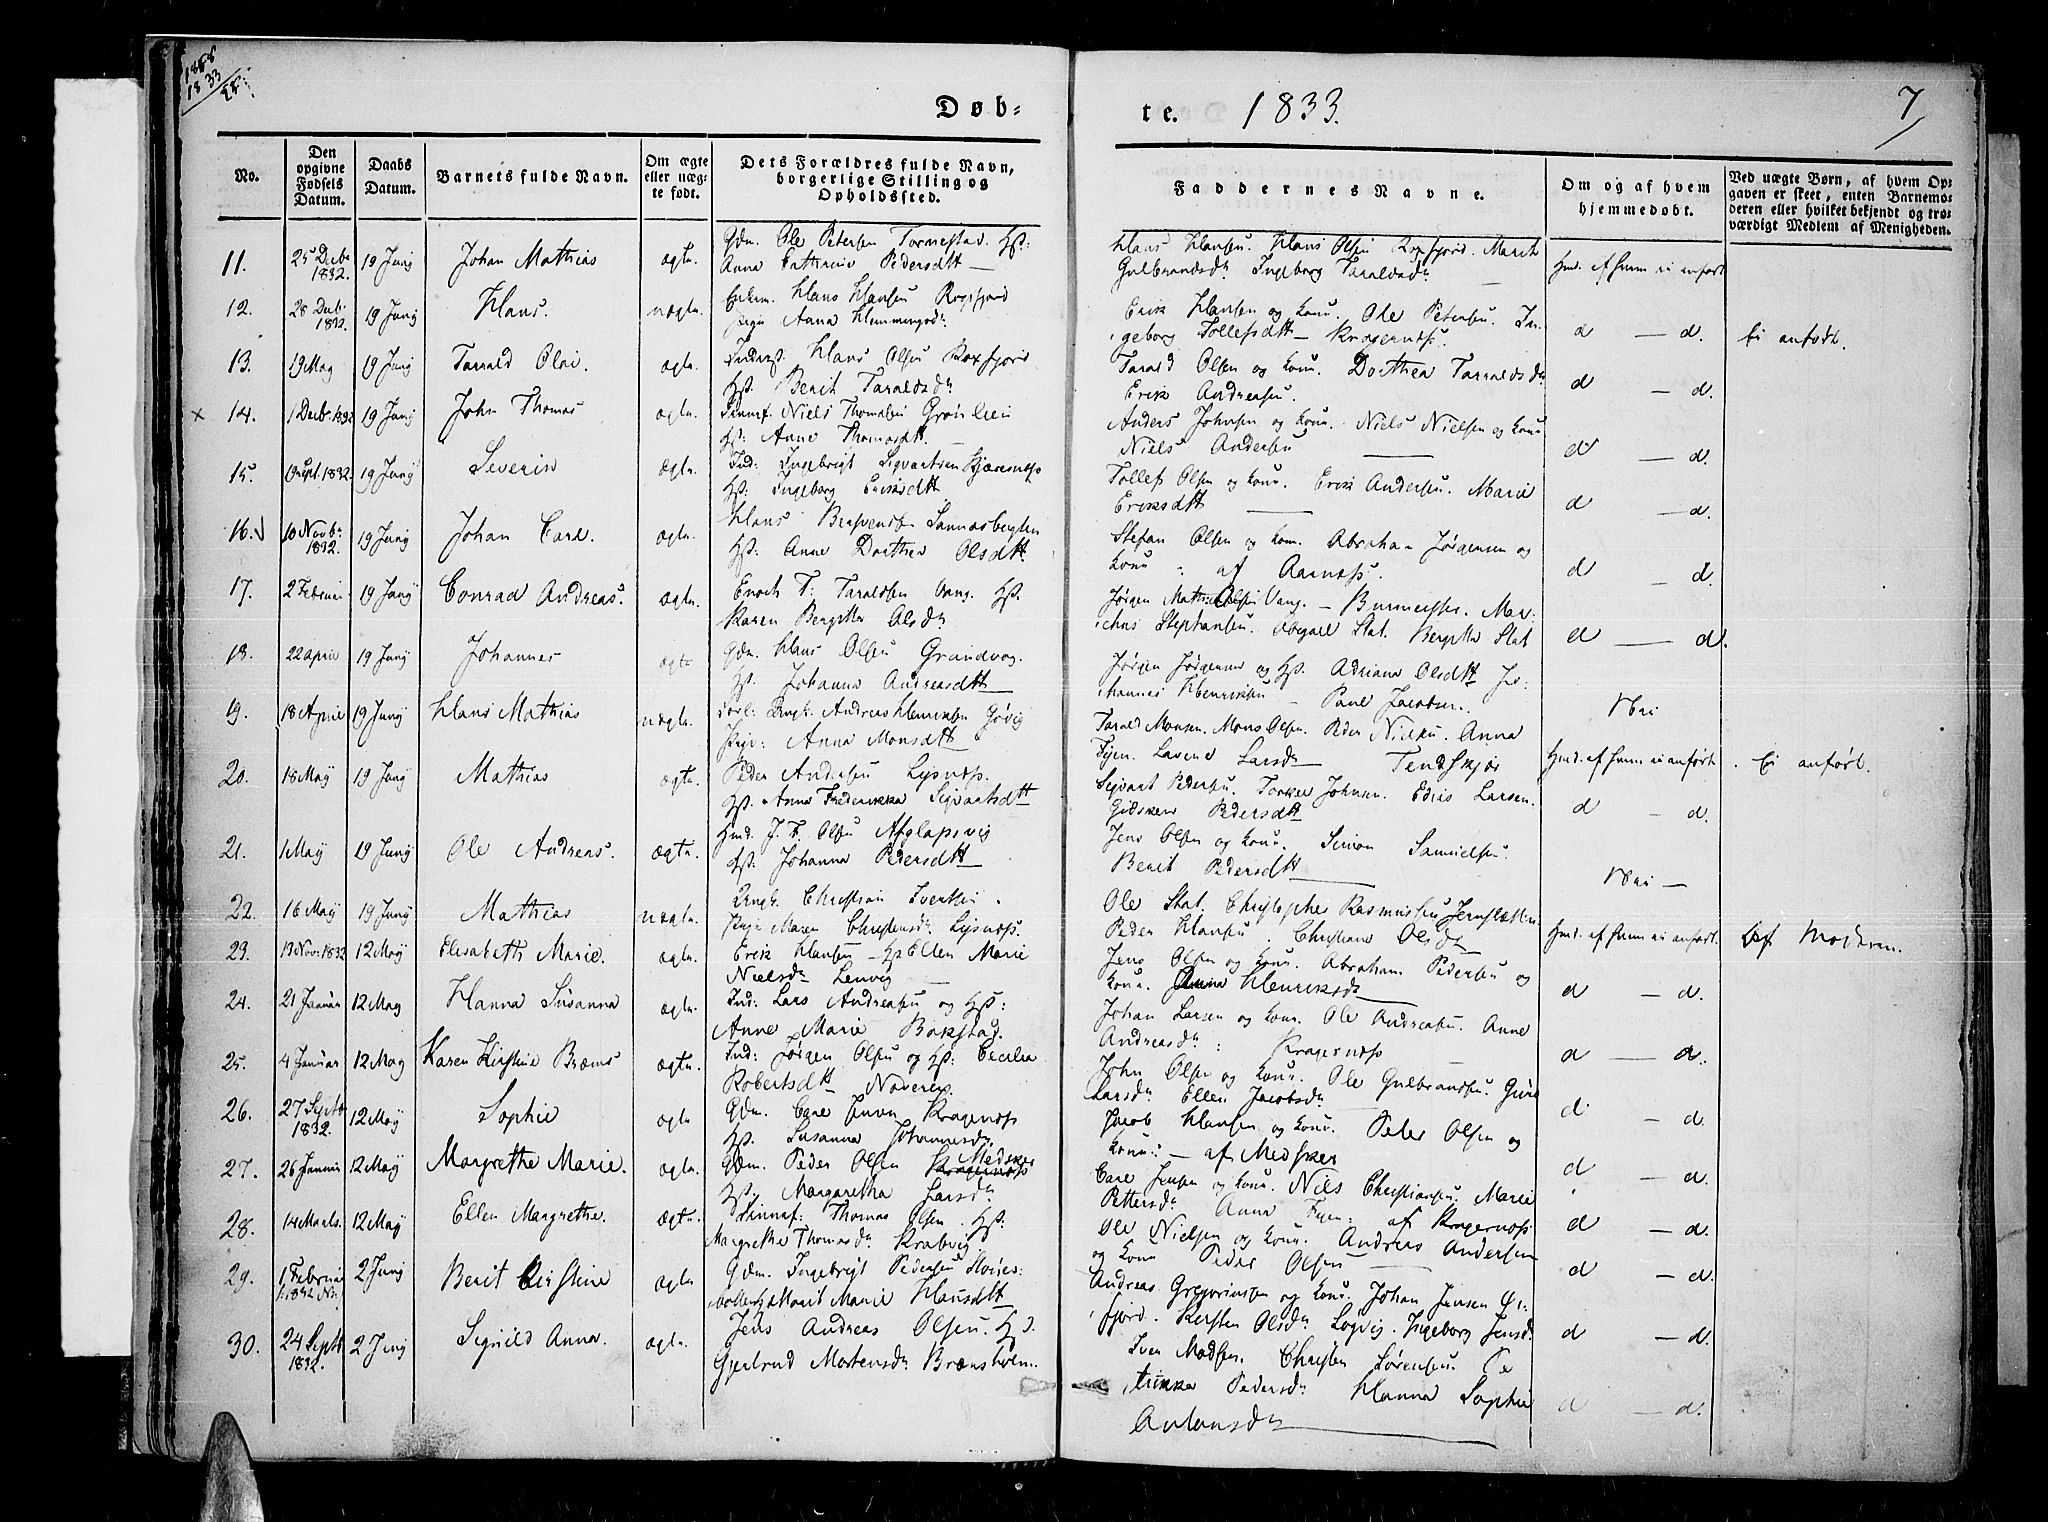 Døb=
te. 1833.
7
No.
Den opgivne Fødsels Datum.
Daabs Datum.
Barnets fulde Navn.
Om ægte eller uægte født.
Dets Forældres fulde Navn, borgerlige Stilling og Opholdssted.
Faddernes Navne.
Om og af hvem hjemmedøbt.
Ved uægte Børn, af hvem Opgaven er skeet, enten Barnemoderen eller hvilket bekjendt og troværdigt Medlem af Menigheden.
11. 25 Decbr 1832. 19 Juny Johan Mathias ægte. Gdm. Ole Petersen Tornestad. Hst:
Anna Cathrine Pedersdtt
Hans Hansen. Hans Olsen Roxfjord. Marit
Gulbrandsdr Ingeborg Taraldsdr
Hmd. af hvem ei anført
12. 28 Decb. 1832. 19 Juny Hans. uægte. Hans Hansen Roxfjord
Pige Anna Hemmingsdr
Erik Hansen og kone. Ole Petersen. In-
geborg Tollefsdtt Kragernæss.
d — d.
Ei anført.
13. 19 May 19 Juny Tarald Olai. ægte. Inderst. Hans Olsen Roxfjord
Hst. Berit Taraldsdr
Tarald Olsen og kone. Dorthea Tarraldsdr
Erik Andreasen.
d — d.
x 14. 1 Decb. 1832 19 Juny John Thomas ægte. Niels Thomassen Grønlien
Hst: Anne Thomasdtt.
Anders Johnsen og kone. Niels Nielsen og kone
Niels Andersen
d — d.
15. 19 Sept. 1832. 19 Juny Severin ægte. Ind: Ingebrigt Sigvartsen Kjæresnæss
Hst: Ingeborg Eriksdtt
Tollef Olsen og kone. Erik Andersen. Marie
Eriksdtt
d — d.
16. 10 Novbr 1832. 19 Juny Johan Carl. ægte. Hans
Hst: Anne Dorthea Olsdtt
Stefan Olsen og kone. Abraham Jørgensen og
kone af Aarnæss.
d — d.
17. 2 Februar 19 Juny Conrad Andreas. ægte. Enoch T: Taraldsen Vang. Hst.
Karen Bergitta Olsdr
Jørgen Math: Olsen Vang. — Burmeister. Mar-
chus Stephansen. Abigael Stat. Bergitta Stat
d — d.
18. 22 April 19 Juny Johannes ægte Gdm. Hans Olsen Grandvog.
Hst. Johanna Andreasdtt
Jørgen Jørgensen og Hst. Adriana Olsdtt Jo-
hannes Henriksen — Paul Jacobsen.
Nei
19. 18 April 19 Juny Hans Mathias uægte. Ungk: Andreas Henriksen Gjøvig
Pige: Anna Monsdtt
Tarald Monsen. Mons Olsen. Peder Nielsen. Anna
Lavene Larsdr Tendskjær
Hmd. af hvem ei anført
Ei anført.
20. 18 May 19 Juny Mathias ægte. Peder Andersen Lysnæss.
Hst. Anne Fredrikka Sigvartsdtt
Sigvart Pedersen. Torker Johnsen. Edias Larsen.
Gidsken Pedersdtt
d — d.
21. 1 May 19 Juny Ole Andreas. ægte. Hmd. J. F. Olsen Afglapsvig
Hst. Johanna Pedersdtt
Jens Olsen og kone. Simon Samuelsen.
Berit Pedersdtt
Nei —
22. 16 May 19 Juny Mathias uægte. Ungk. Christian Iversen.
Pige Maren Christensdr Lysnæss.
Ole Stat. Christopher Rasmussen Jernslætten
Peder Hansen. Christiane Olsdr
Hmd. af hvem ei anført.
Af Moderen.
23. 13 Nov: 1832 12 May Elisabeth Marie. ægte. Erik Hansen — Hst Ellen Marie
Nielsdr Lenvig
Jens Olsen og kone. Abraham Pedersen og
kone. Anna Henriksdr
d — d.
24. 21 Januar 12 May Hanna Susanna ægte. Ind: Lars Andreasen og Hst:
Anne Marie Bakstad.
Johan Larsen og kone. Ole Andreasen. Anne
Andreasdr: Kragernæss
d — d.
25. 4 Januar 12 May Karen Kirstine Bræms ægte. Ind: Jørgen Olsen og Hst: Cecilia
Robertsdtt
John Olsen og kone. Ole Gulbrandsen. Guri
Larsdr Ellen Jacobsdr
d. — d.
26. 27 Septb 1832. 12 May Sophie ægte Gdm. Carl Jensen Kragernæss
Hst. Susanna Johannesdr.
Jacob Hansen og kone. Peter Olsen og
kone: — af Medskær
d — d.
27. 26 Januar 12 May Margrethe Marie. ægte. Gdm. Peder Olsen Medskær
Hst. Margaretha Larsdr
Carl Jensen og kone. Niels Christiansen. Marie
Pettersdr Anna af Kragernæss
d — d.
28. 14 Marts. 12 May Ellen Margrethe. ægte. Thomas Olsen. Hst.
Margrethe Thomasdr. Krabvig.
Ole Nielsen og kone. Andreas Andersen
og kone Peder Olsen
d — d.
29. 1 Februar 2 Juny Berit Cirstine ægte Gdm. Ingebrigt Pedersen
Marit Marie Hansdtt
Andreas Gregoriussen og kone. Johan Jensen Gi-
fjord. Kirsten Olsdr Løgvig. Ingeborg Jensdr
d — d.
30. 24 Septb 1832. 2 Juny Signild Anna. ægte. Jens Andreas Olsen. Hst.
Gjertrud Mortensdr: Brænsholm.
Iver Madsen. Christen Sørensen. Pe-
trikka Pedersdr Hanna Sophie
Antonsdr
d — d.